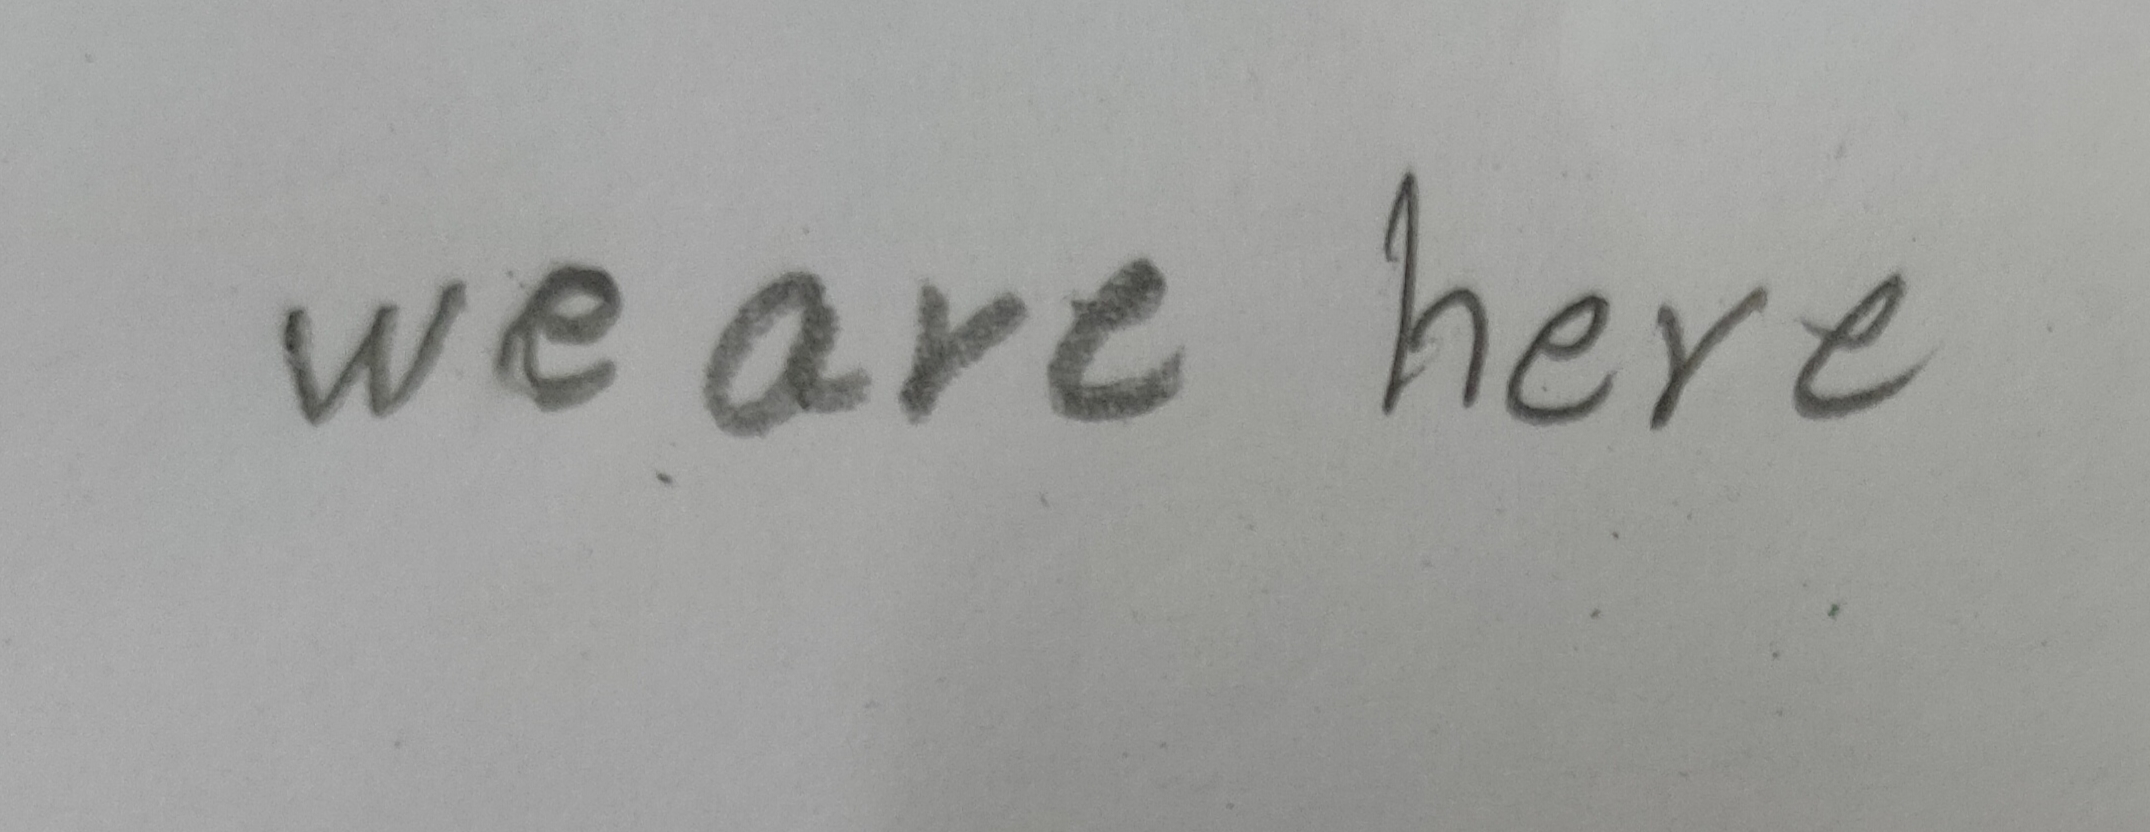 we are here